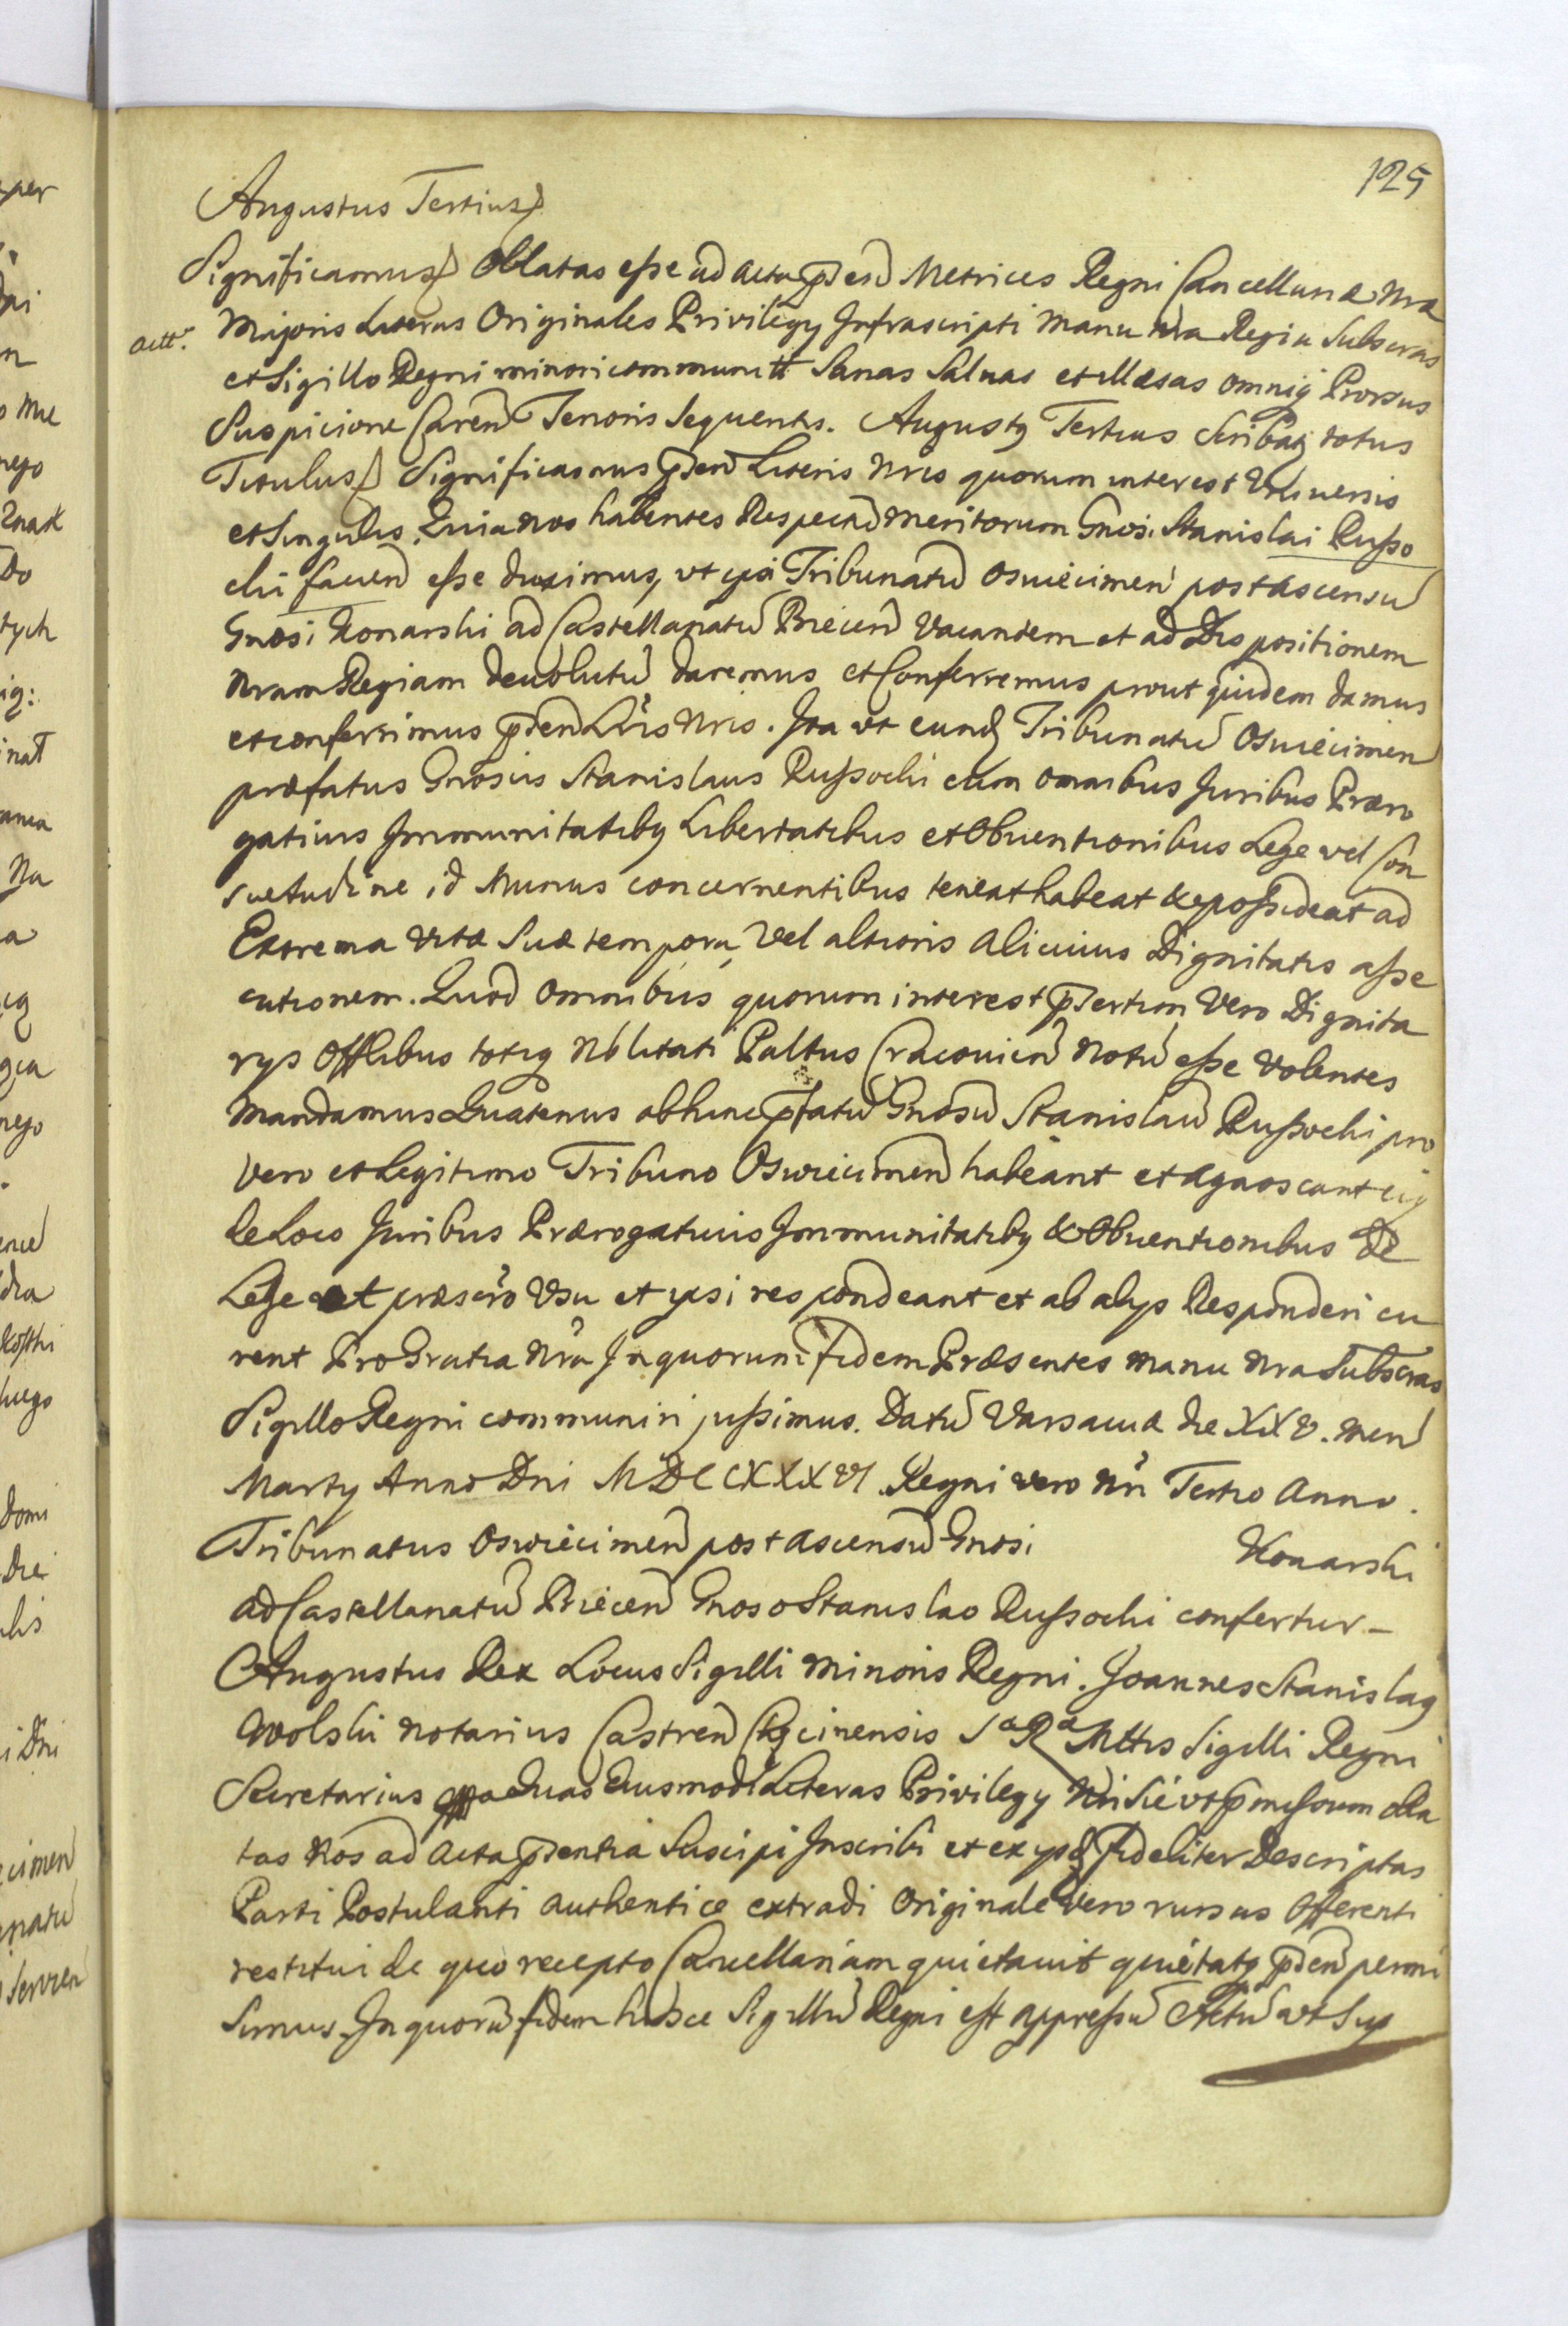 125
Augustus Tertius
Significamus Oblatas esse ad acta pñtia Metrices Regni Cancellariæ Nræ
actt.
Majoris Literas Originales Privilegy Infrascripti Manu nra Regia Subscras
et Sigillo Regni minori communitt Sanas Saluas et illæsas omniq Prorsus
Suspicione Caren Tenoris Sequentis. Augusty Tertius Scribatq totus
Titulus Significamus pñen Literis Nris quorum interest Vniuersis
et Singulis. Quia nos habentes Respectu meritorum Gnosi Stanislai Russo
cki faciend esse duximus, vt ipsi Tribunatu Oswiecimen post ascensu
Gnosi Konarski ad Castellanatu Biecen Vacantem et ad Dispositionem
Nram Regiam deuolutu daremus et Conferremus prout quidem damus
et conferrimus pñen Lris Nris. Ita vt eundq Tribunatu Oswiecimen
præfatus Gnosus Stanislaus Russocki cum omnibus Juribus Præro
gatiuis Immunitatiby Libertatibus et Obuentionibus Lege vel Con
suetudine id Munus concernentibus teneat habeat &epossideat ad
Extrema Vitæ Suæ tempora, Vel altioris alicuius Dignitatis asse
cutionem. Quod omnibus quorum interest psertim Vero Dignita
rys Offlibus totiq Nblitati Paltus Cracouien Notu esse Volentes
Mandamus Quatenus abhinc pfatu Gnosu Stanislau Russocki pro
Vero et Legitimo Tribuno Oswiecimen habeant et agnoscant eiq
de Loco Juribus Prærogatiuis Immunitatiby & Obuentionibus De
Lege et præscro Vsu et ipsi respondeant et ab alys Responderi cu
rent Pro Gratia Nra In quorum fidem Præsentes manu Nra Subscras
Sigillo Regni communiri jussimus. Datu Varsauiæ die XXV. men
Marty Anno Dni MDCCXXXVI Regni vero Nri Tertio Anno.
Tribunatus Oswiecimen post ascensu Gnosi Konarski
ad Castellanatu Biecen Gnoso Stanislao Russocki confertur –
Augustus Rex Locus Sigilli Minoris Regni. Joannes Stanislaq
Wolski Notarius Castren Sæ Ræ Mttis Sigilli Regni
Secretarius quas Eiusmodi Literas Privilegy Nri Sic vt pmissum obla
tas Nos ad Acta pñtia Suscipi Inscribi et ex ysdq fideliter Descriptas
Parti Postulanti authentice extradi Originale Vero rursus Offerenti
restitui de quo recepto Cancellariam quietauit quietatq pñen permi
simus. In quoru fidem hisce Sigillu Regni est appressu Actu vt Sup